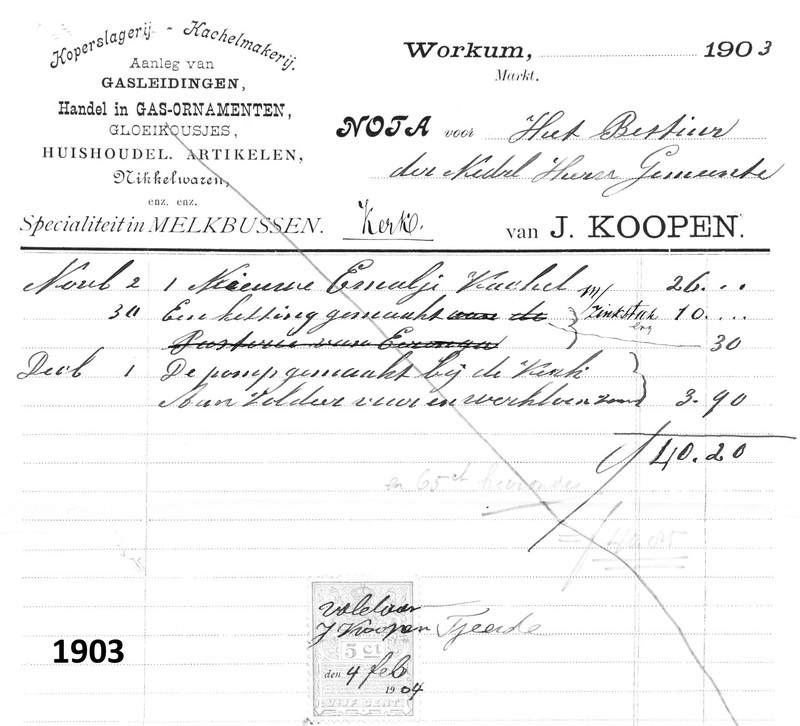 Koperslagerij - Kachelmakerij.
Aanleg van
GASLEIDINGEN,
Handel in GAS-ORNAMENTEN,
GLOEIKOUSJES,
HUISHOUDEL. ARTIKELEN,
Nikkelwaren,
enz. enz.
Specialiteit in MELKBUSSEN.
Workum, 1903
Markt.
NOTA voor Het Bestuur
der Nederl Herv Gemeente
Kerk. van J. KOOPEN.
Novb 2 1 Nieuwe Emalje Kachel 26. . .
30 Een ketting gemaakt aan de 10. . . .
Pastorie van 30
Decb 1 De pomp gemaakt bij de Kerk
Aan Solder vuur en werkloon 3.90
40.20
en 65 ct hieronder
=
voldaan
J Koopen Tjeerde
5 ct
den 4 feb
1904
VIJF CENT
1903